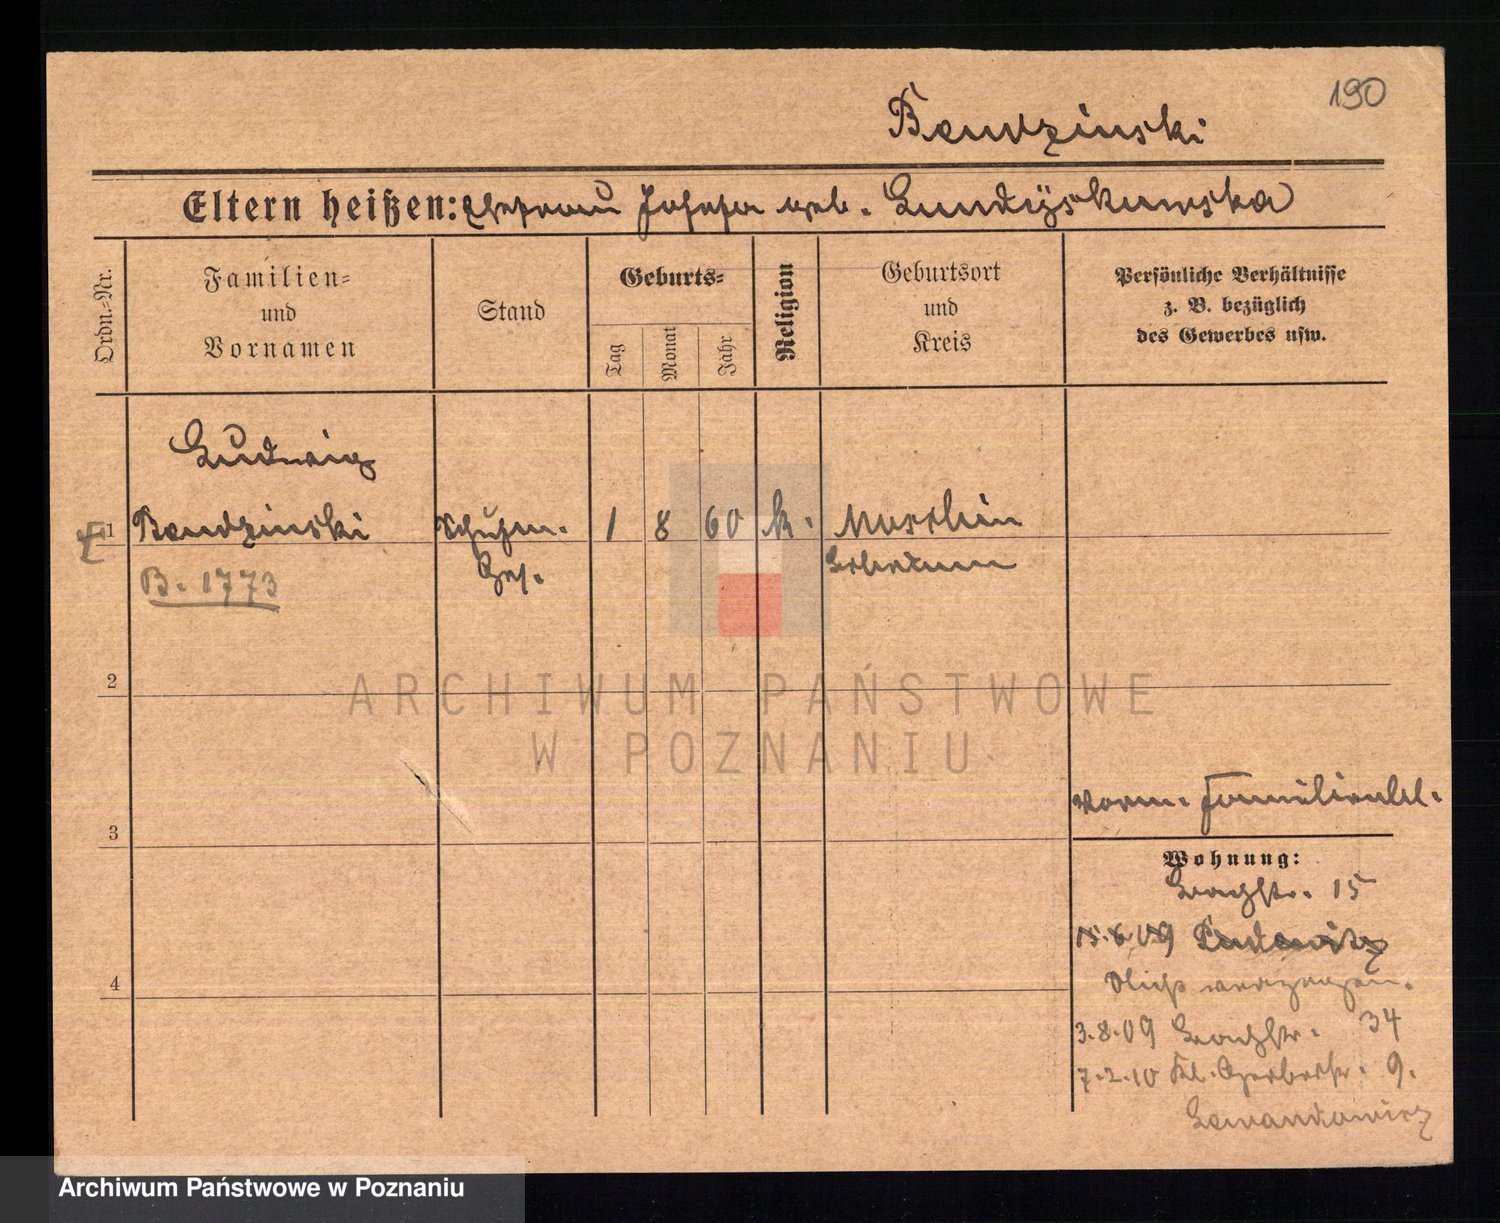 190
Bendzinski
Eltern heißen: Ehefrau Josefa geb.
Ordn.-Nr.
Familien-
und
Vornamen
Stand
Geburts-
Tag
Monat
Jahr
Religion
Geburtsort
und
Kreis
Persönliche Verhältnisse
z. B. bezüglich
des Gewerbes usw.
Ludwig
1 Bendzinski Schuhm. 1 8 60 k. Moschin
Ges.
B. 1773
2
ARCHIWUM PAŃSTWOWE
W POZNANIU
3
4
Familienbl.
Wohnung:
15
15.6.09 Pudewitz
Nicht verzogen.
3.8.09 34
7.2.10 Kl. Gerberstr. 9.
Lewandowicz
Archiwum Państwowe w Poznaniu